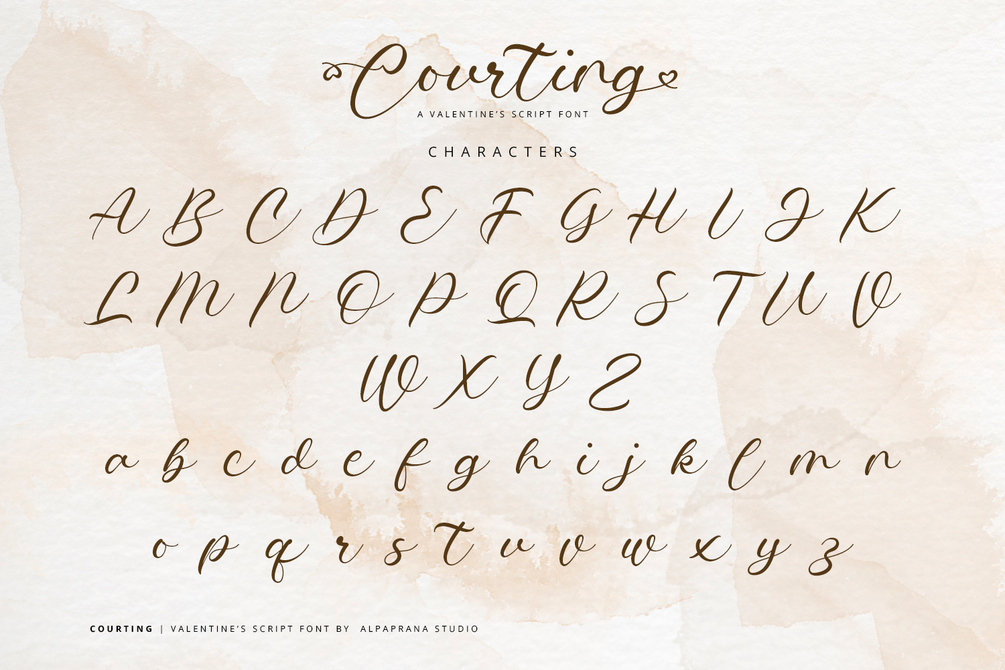 Courting
A VALENTINE'S SCRIPT FONT
CHARACTERS
A B C D E F G H I J K
L M N O P Q R S T U V
W X Y Z
a b c d e f g h i j k l m n
o p q r s t u v w x y z
COURTING | VALENTINE'S SCRIPT FONT BY ALPAPRANA STUDIO